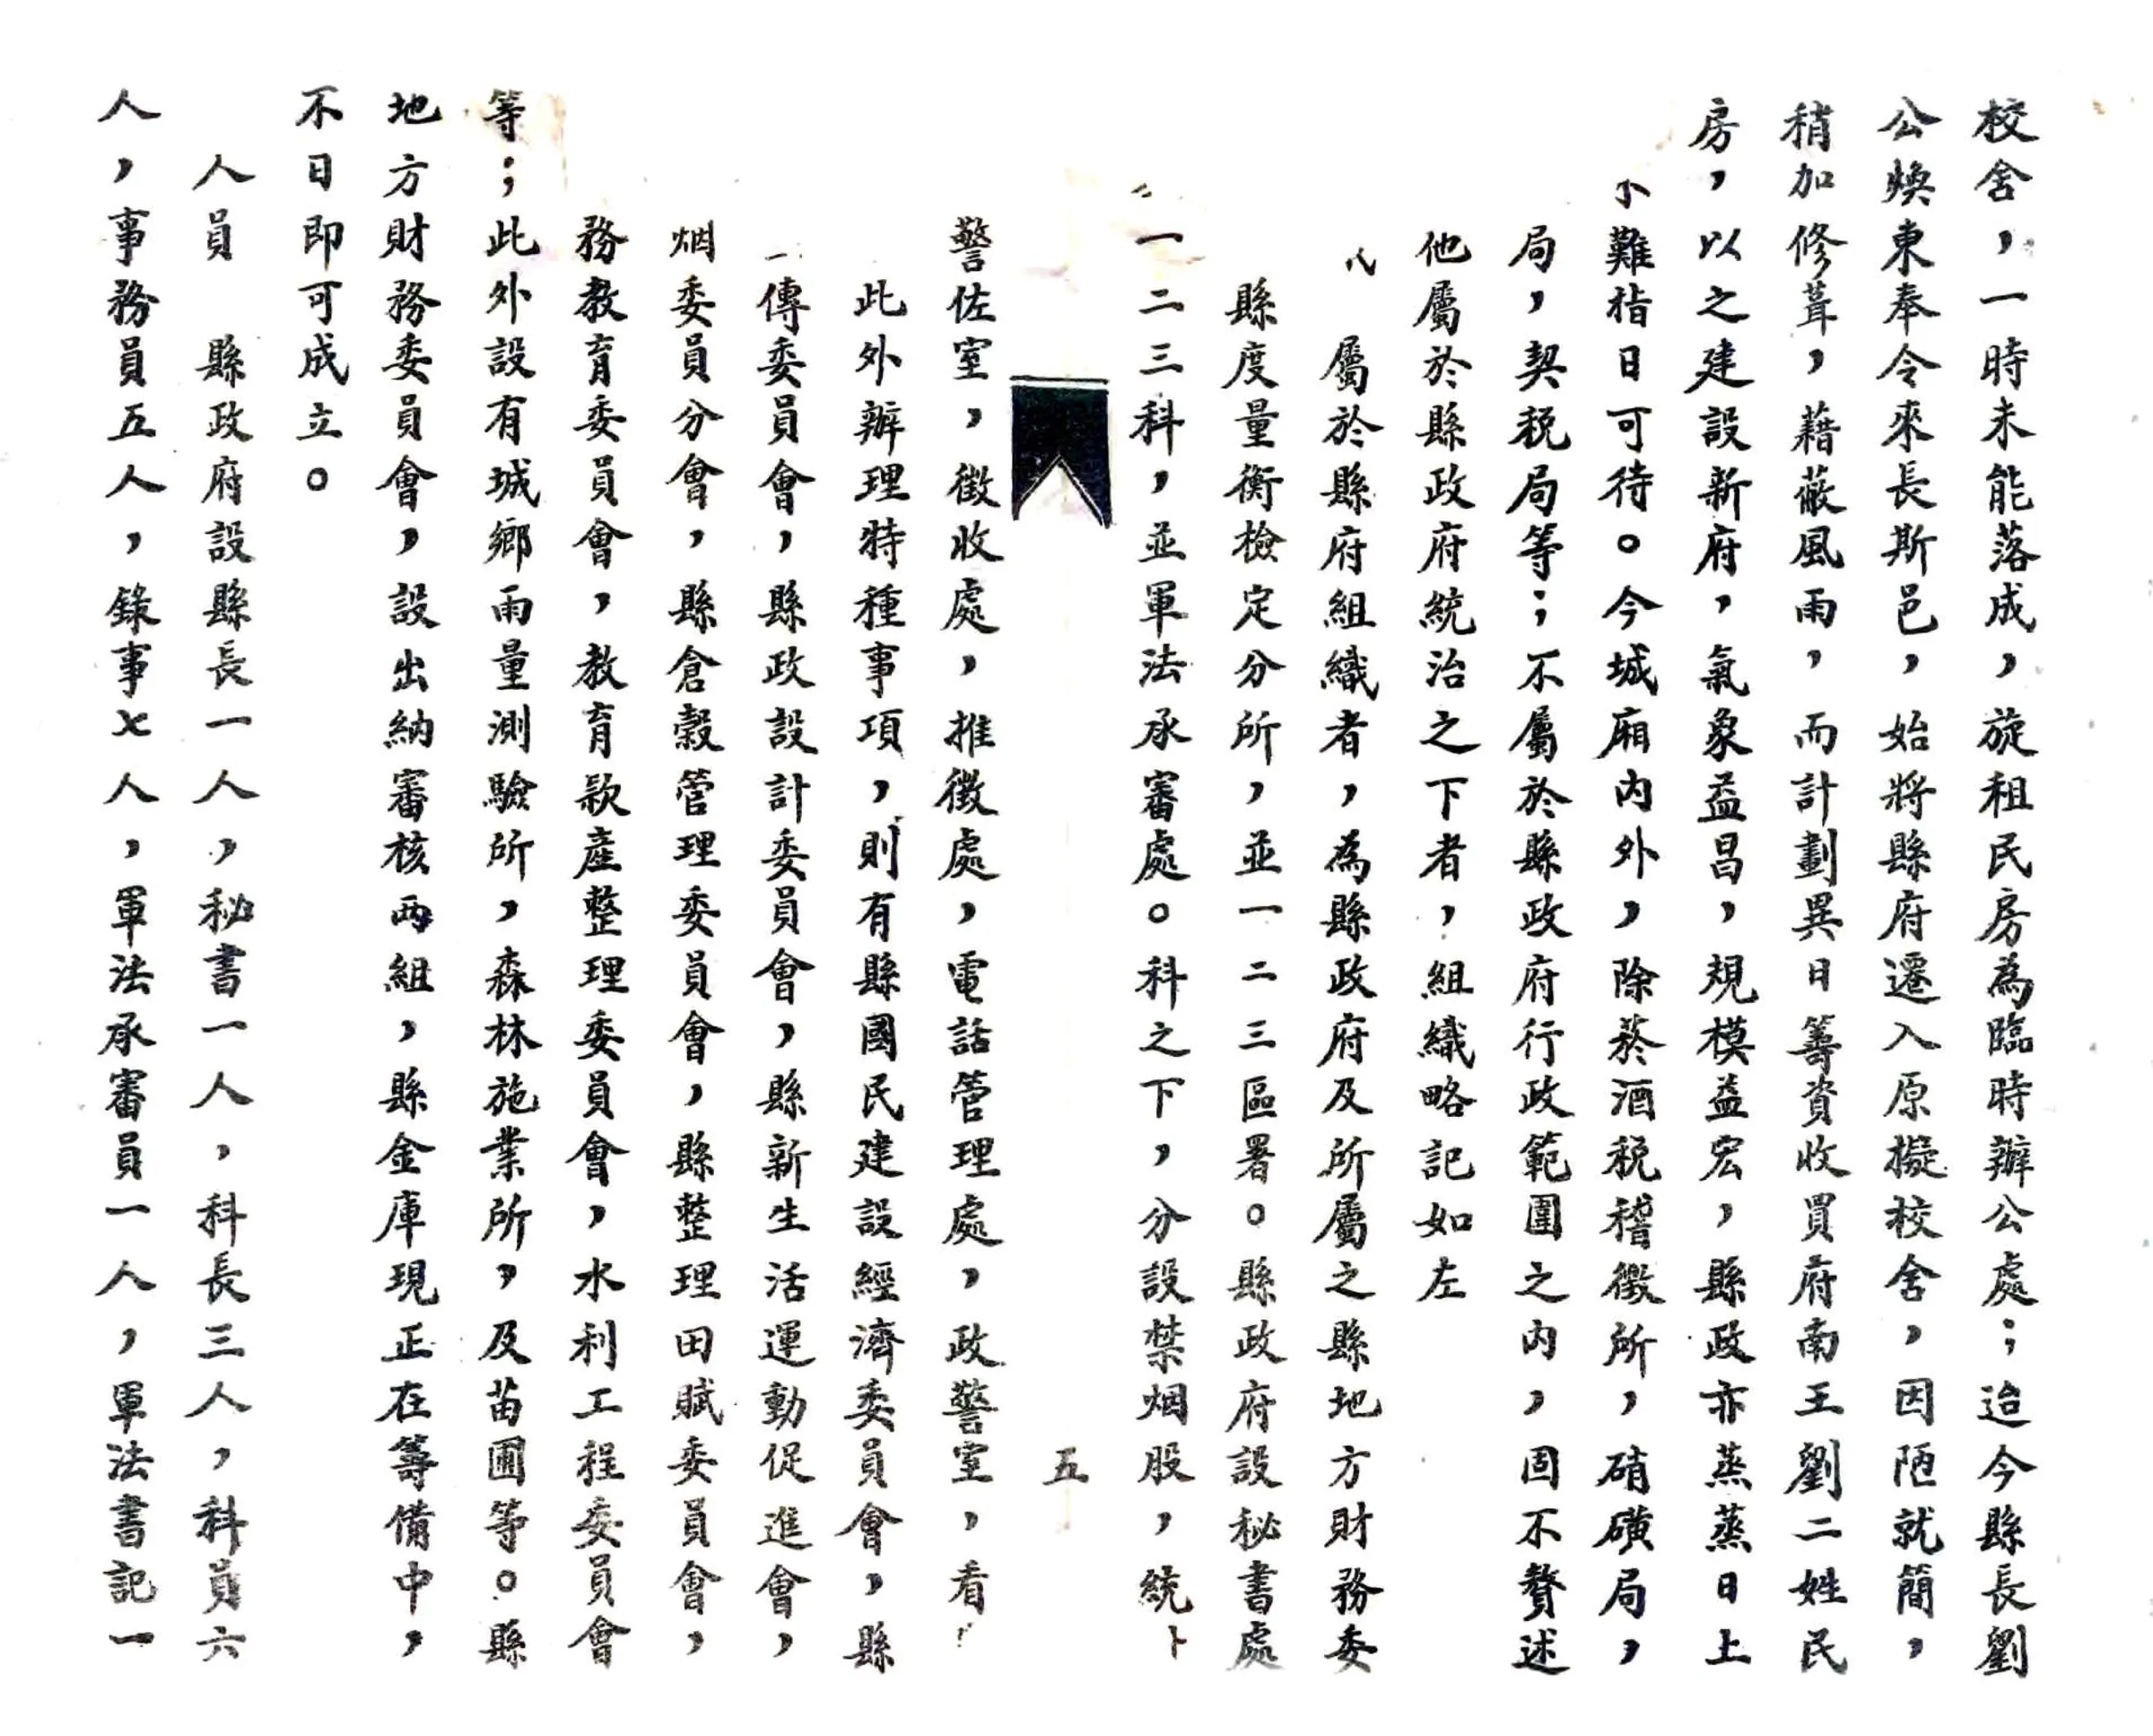 校舍，一時未能落成，旋租民房為臨時辦公處；迨今縣長劉
公煥東奉令來長斯邑，始將縣府遷入原擬校舍，因陋就簡，
稍加修葺，藉蔽風雨，而計劃異日籌資收買府南王劉二姓民
房，以之建設新府，氣象益昌，規模益宏，縣政亦蒸蒸日上
難指日可待。今城廂內外，除菸酒稅稽徵所，硝磺局，
局，契税局等；不屬於縣政府行政範圍之內，固不贅述
他屬於縣政府統治之下者，組織略記如左
屬於縣府組織者，為縣政府及所屬之縣地方財務委
縣度量衡檢定分所，並一二三區署。縣政府設秘書處
一二三科，並軍法承審處。科之下，分設禁烟股，統
五
警佐室，徵收處，推徵處，電話管理處，政警室，看
此外辦理特種事項，則有縣國民建設經濟委員會，縣
傳委員會，縣政設計委員會，縣新生活運動促進會，
烟委員分會，縣倉穀管理委員會，縣整理田賦委員會，
務教育委員會，教育款產整理委員會，水利工程委員會
等；此外設有城鄉雨量測驗所，森林施業所，及苗圃等。縣
地方財務委員會，設出納審核两組，縣金庫現正在籌備中，
不日即可成立。
人員　縣政府設縣長一人，秘書一人，科長三人，科員六
人，事務員五人，錄事七人，軍法承審員一人，軍法書記一